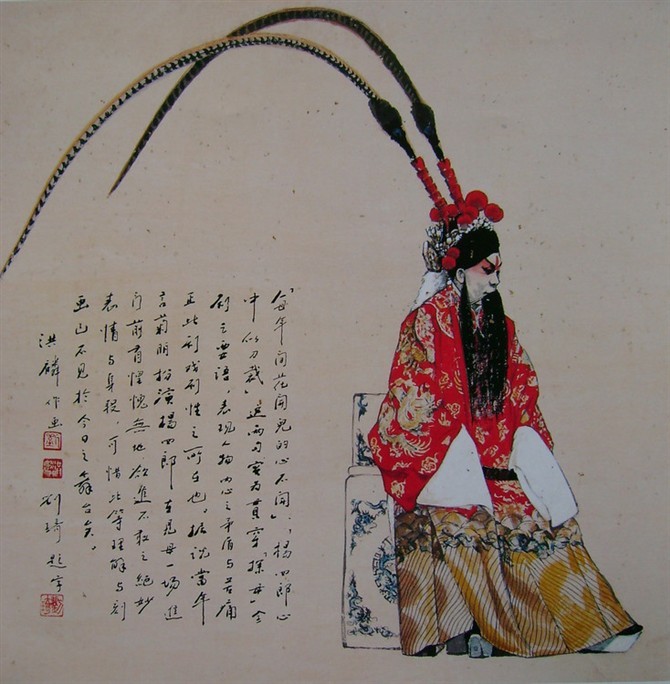 「每年间花開兒的心不開」、「楊四郎心
中似刀裁」這两句實為貫穿「探母」全
劇之語，表現人物内心之矛盾与苦痛
正此劇戏劇性之所在也。据说當年
言菊朋扮演楊四郎在見母一場進
門前有惶愧無地欲進不敢之絕妙
表情与身段，可惜此等理解与刻
画已不見於今日之舞台矣。
洪麟作画 劉琦题字